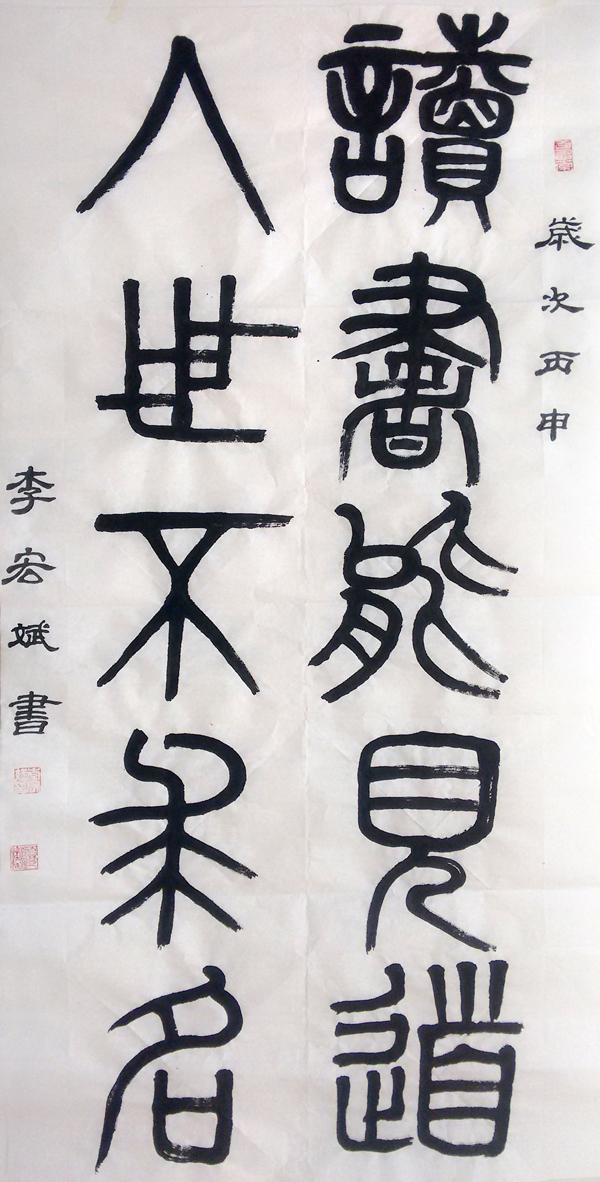 歲次丙申
讀書能見道
入世不求名
李宏斌書